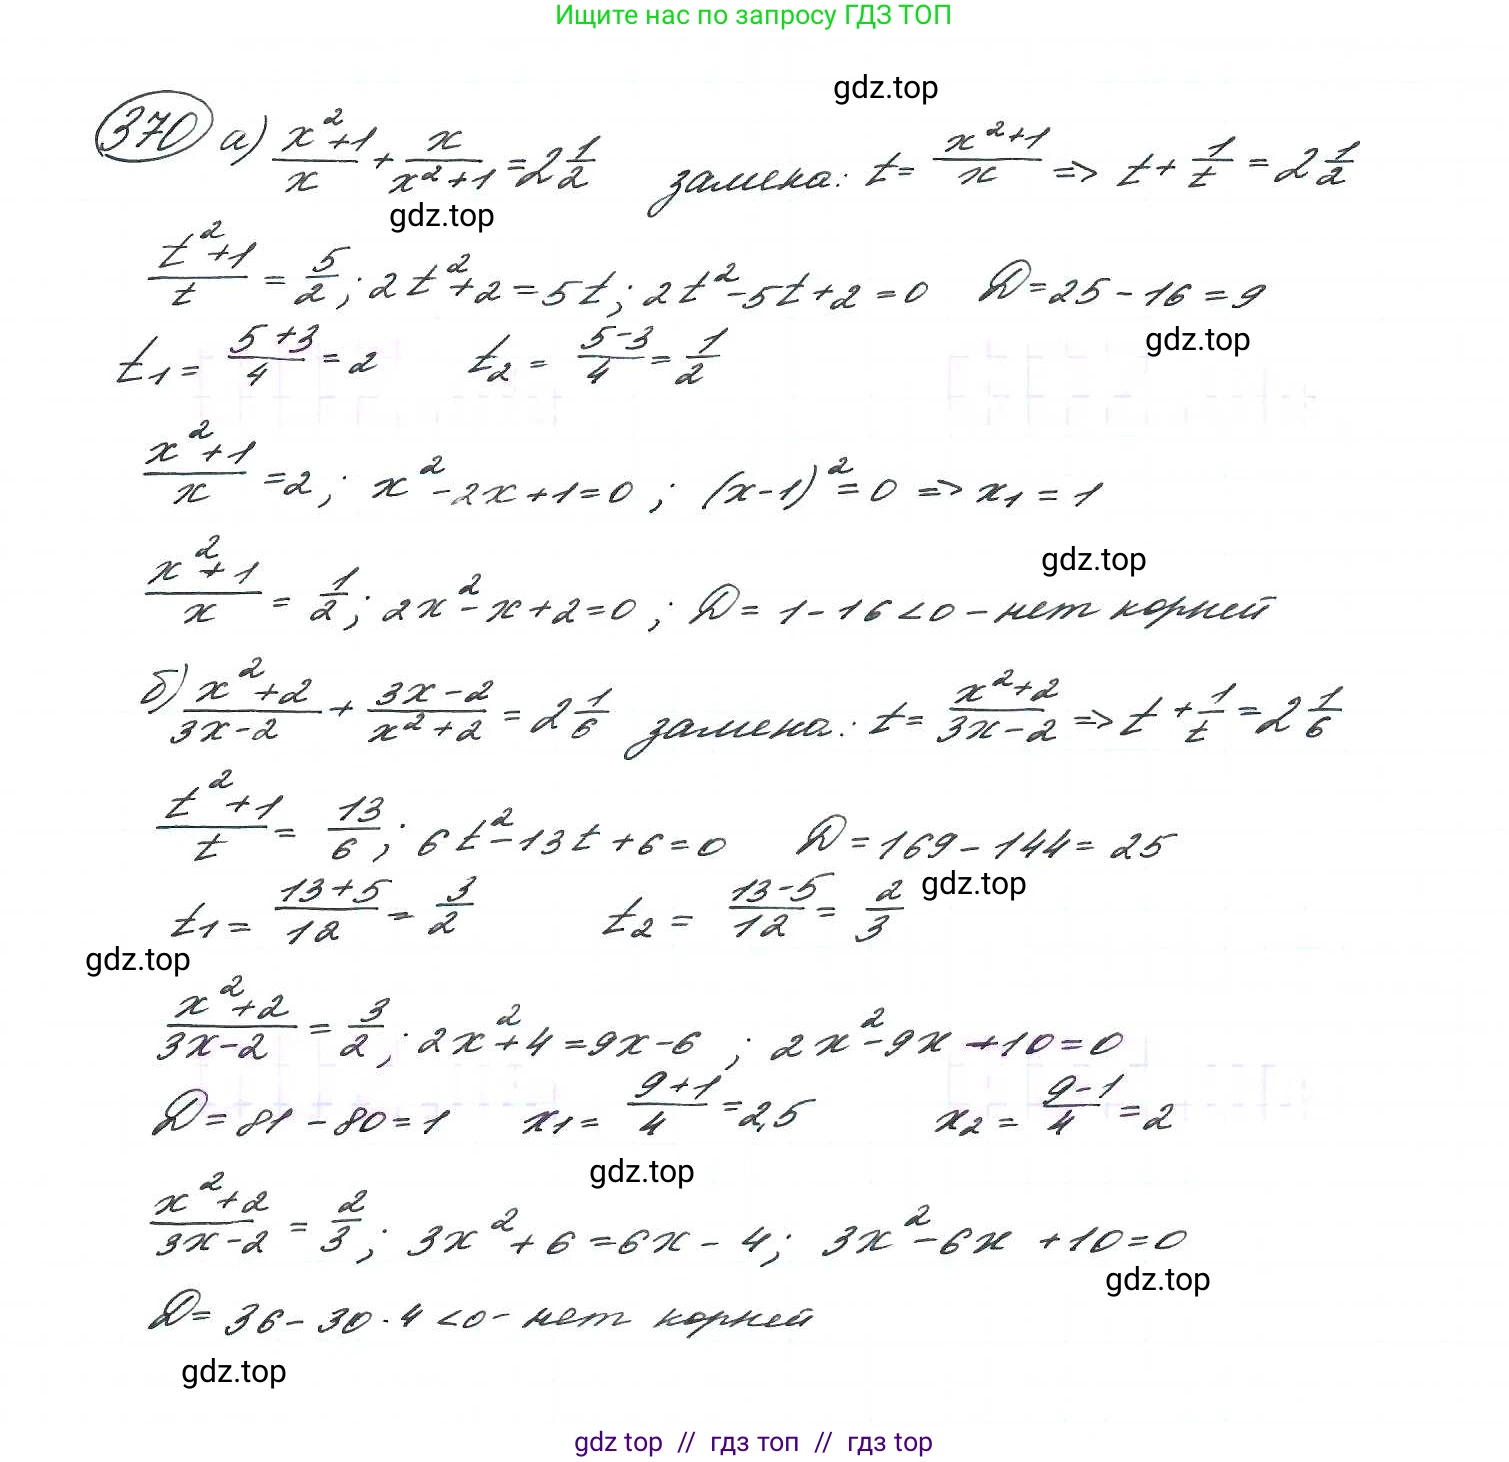 Ищите нас по запросу ГДЗ ТОП
gdz.top
370 а) (x²+1)/x + x/(x²+1) = 2 1/2 замена: t = (x²+1)/x => t + 1/t = 2 1/2
gdz.top
(t²+1)/t = 5/2; 2t²+2=5t; 2t²-5t+2=0 D=25-16=9
gdz.top
t₁ = (5+3)/4 = 2 t₂ = (5-3)/4 = 1/2
(x²+1)/x = 2; x²-2x+1=0; (x-1)²=0 => x₁=1
gdz.top
(x²+1)/x = 1/2; 2x²-x+2=0; D=1-16<0 - нет корней
б) (x²+2)/(3x-2) + (3x-2)/(x²+2) = 2 1/6 замена: t = (x²+2)/(3x-2) => t + 1/t = 2 1/6
(t²+1)/t = 13/6; 6t²-13t+6=0 D=169-144=25
gdz.top
t₁ = (13+5)/12 = 3/2 t₂ = (13-5)/12 = 2/3
gdz.top
(x²+2)/(3x-2) = 3/2; 2x²+4=9x-6; 2x²-9x+10=0
D=81-80=1 x₁ = (9+1)/4 = 2,5 x₂ = (9-1)/4 = 2
gdz.top
(x²+2)/(3x-2) = 2/3; 3x²+6=6x-4; 3x²-6x+10=0
gdz.top
D=36-30·4<0- нет корней
gdz.top
gdz top // гдз топ // гдз top